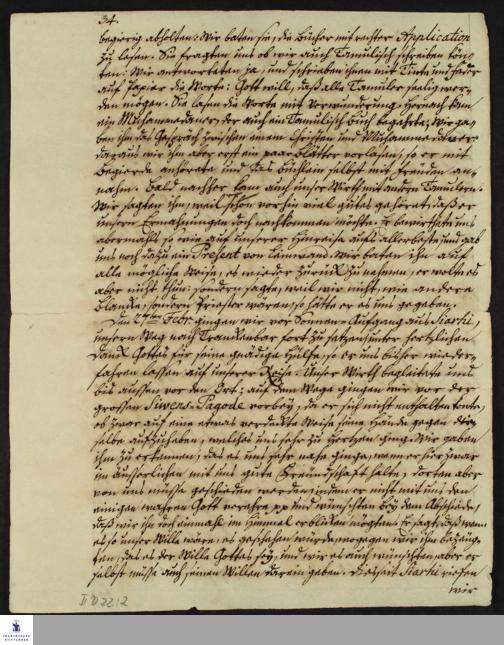 34.
begierig abholten: Wir baten sie, die Bücher mit rechter Application
zu lesen. Sie fragten uns ob wir auch Tamulisch schreiben kön-
ten: Wir antworteten ja, und schrieben ihnen mit Tinte und feder
auf Papier die Worte: Gott will, daß alle Tamuler seelig wer-
den mögen. Sie lasen die Worte mit Verwunderung. Hernach kam
ein Muhammedaner, der auch ein Tamulisch Buch begehrte; wir ga-
ben ihm das Gespräch zwischen einem Christen und Muhammedaner
daraus wir ihm aber erst ein paar Blätter vorlasen, so er mit
Begierde anhörete und das Büchlein selbst mit Freuden an-
nahm. Bald nachher kam auch unser Wirth mit andern Tamulern.
Wir sagten ihm, weil schon vorhin viel gutes gehöret, daß er
unsern Ermahnungen doch nachkommen möchte. Er bewirthete uns
abermahls so wie auf unserer Hinreise aufs allerbeste, und gab
uns noch dazu ein Present von Leinwand. Wir baten ihn auf
alle mögliche Weise, es wieder zurück zu nehmen, er wolte es
aber nicht thun: sondern sagte, weil wir nicht, wie andere
Blanke, sondern Priester wären, so hätte er es uns gegeben.
Den 27ten Febr. gingen wir vor Sonnen Aufgang aus Siarhi,
unsern Weg nach Trankenbar fort zu setzen unter hertzlichen
Danck Gottes für seine gnädige Hülfe, so er uns bisher wieder-
fahren lassen auf unserer Reise. Unser Wirth begleitete uns
bis aussen vor den Ort; auf dem Wege gingen wir vor der
grossen Siwens-Pagode vorbey, da er sich nicht enthalten konte,
ob zwar auf eine etwas verdeckte Weise seine Hände gegen die-
selbe aufzuheben, welches uns sehr zu Hertzen ging. Wir gaben
ihm zu erkennen, das es uns sehr nahe ginge, wenn er hier zwar
im äusserlichen mit uns gute Freundschaft halte, dorten aber
von uns müsse geschieden werden, indem er nicht mit uns den
einigen wahren Gott verehre pp und wünschten bey dem Abschiede,
daß wir ihn doch einmahl im Himmel erblicken mögten. Er sagte, daß wenn
es so unser Wille wäre, es geschehen würde, wogegen wir ihm bezeug-
ten, das es der Wille Gottes sey, und wir es auch wünschten aber er
selbst müsse auch seinen Willen darein geben. Diesseit Siarhi riefen
wir
II D 22:2
FRANCKESCHE
STIFTUNGEN